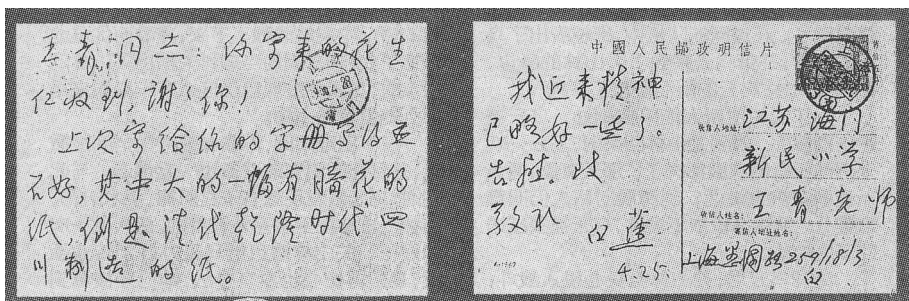 王青同志：你寄来的花生
仁收到，谢谢你！
上次寄给你的字册写得并
不好，其中大的一幅有暗花的
纸，倒是清代乾隆时代四
川制造的纸。
中國人民邮政明信片
我近来精神
已略好一些了。
告慰。此
敬礼
白蕉
4.25.
收信人地址：江苏 海门
新民小学
收信人姓名：王青老师
寄信人地址姓名：
上海 259/18/3
白